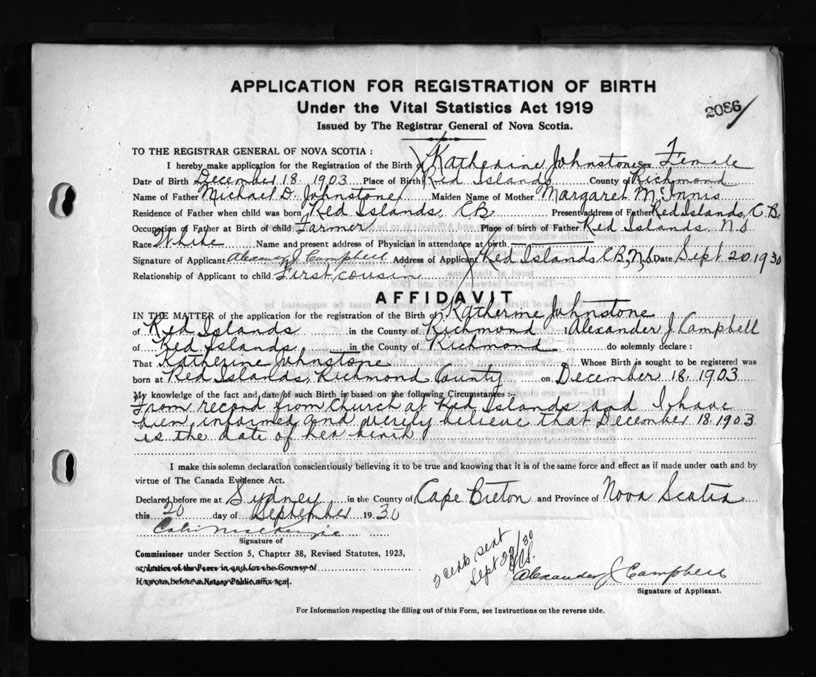 APPLICATION FOR REGISTRATION OF BIRTH
Under the Vital Statistics Act 1919
2086
Issued by The Registrar General of Nova Scotia.
TO THE REGISTRAR GENERAL OF NOVA SCOTIA :
I hereby make application for the Registration of the Birth of Katherine Johnstone Sex Female
Date of Birth December 18. 1903 Place of Birth Red Islands County of Richmond
Name of Father Michael D. Johnstone Maiden Name of Mother Margaret McInnis
Residence of Father when child was born Red Islands, C.B. Present address of Father Red Islands, C.B.
Occupation of Father at Birth of child Farmer Place of birth of Father Red Islands. N.S.
Race White Name and present address of Physician in attendance at birth.
Signature of Applicant Alexander J Campbell Address of Applicant Red Islands C.B., N.S. Date Sept. 20. 1930
Relationship of Applicant to child First cousin
AFFIDAVIT
IN THE MATTER of the application for the registration of the Birth of Katherine Johnstone
of Red Islands in the County of Richmond Alexander J. Campbell
of Red Islands in the County of Richmond do solemnly declare :
That Katherine Johnstone Whose Birth is sought to be registered was
born at Red Islands, Richmond County on December 18. 1903
My knowledge of the fact and date of such Birth is based on the following Circumstances :-
From record from Church at Red Islands and I have
been informed and verily believe that December 18. 1903
is the date of her birth
I make this solemn declaration conscientiously believing it to be true and knowing that it is of the same force and effect as if made under oath and by
virtue of The Canada Evidence Act.
Declared before me at Sydney in the County of Cape Breton and Province of Nova Scotia
this 20 day of September 1930
Signature of
Commissioner under Section 5, Chapter 38, Revised Statutes, 1923,
or Justice of the Peace in and for the County of
If sworn before a Notary Public affix seal.
sent
Sept 22/30
Alexander J Campbell
Signature of Applicant.
For Information respecting the filling out of this Form, see Instructions on the reverse side.